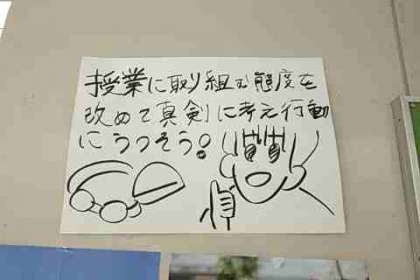 授業に取り組む態度を
改めて真剣に考え行動
にうつそう!